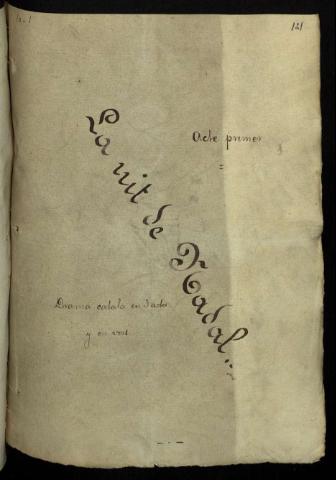 121
Acte primer
La nit de Nadal
Drama catalá en 3 actes
y en vers